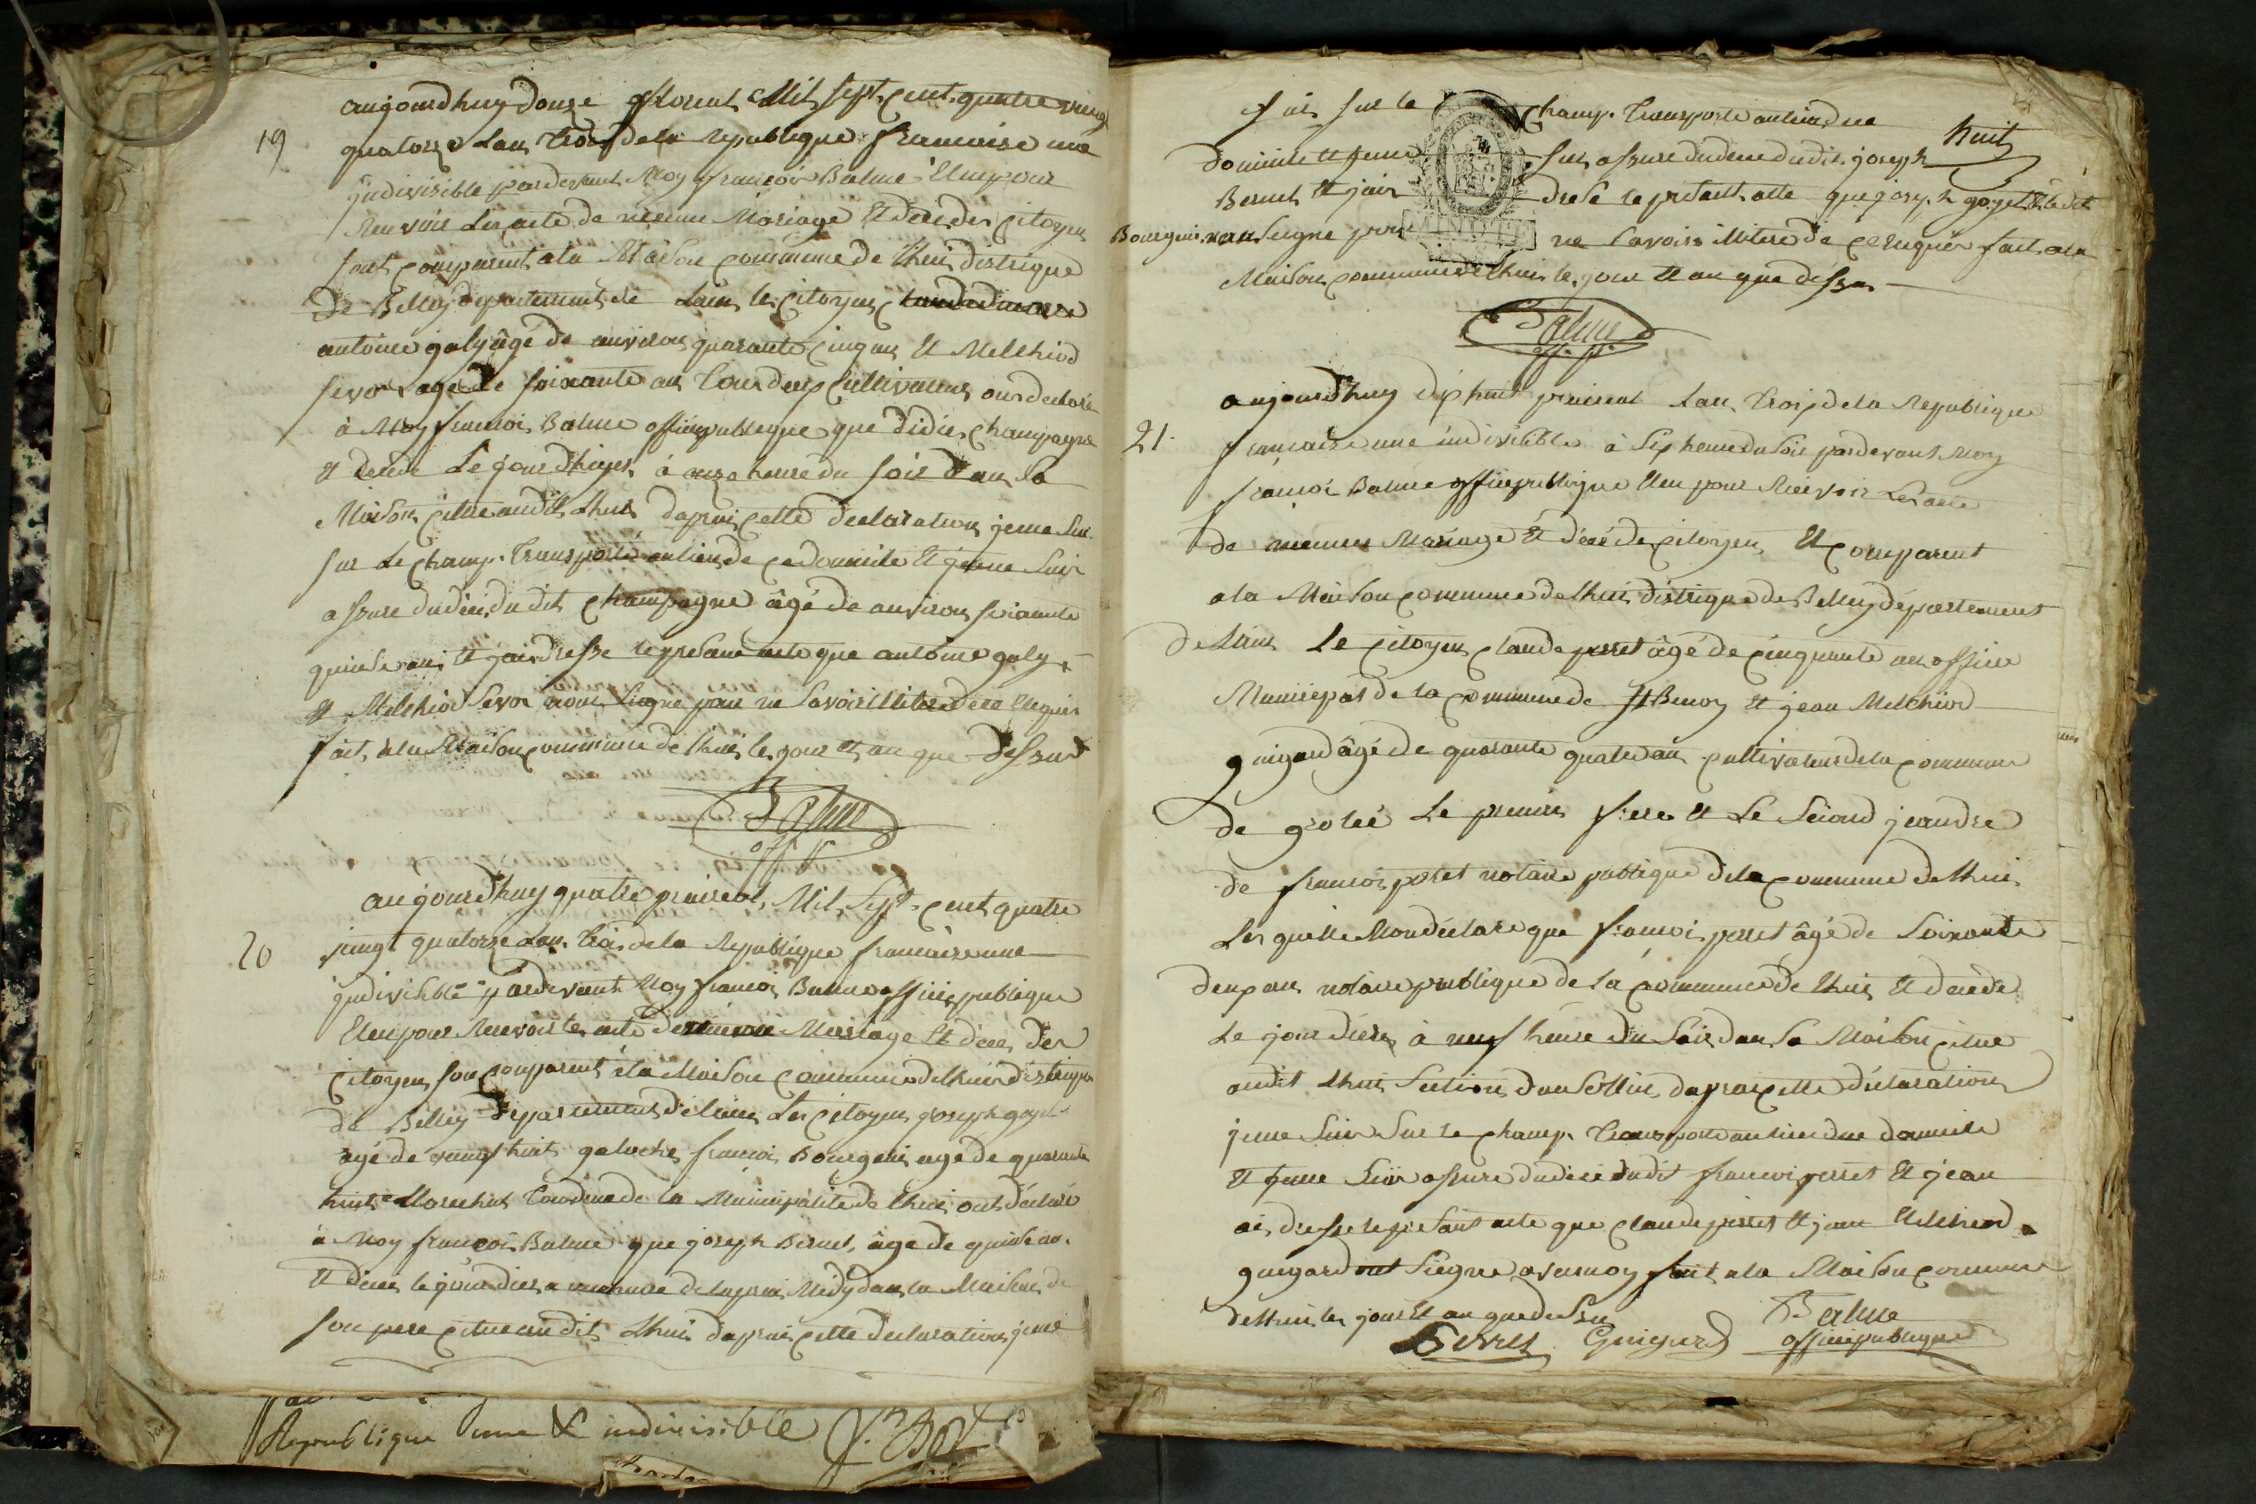 19
aujourdhuy douze floreal Mil sept cent quatre vingt
quatorze Lan trois de la republique francaise une
jndivisible pardevant Moy francois Balme Elu pour
Recevoir Les acte de Mariage Et déces des citoyen
sont comparut a la Maison commune de Lhui distrique
de Belley departement de Lain les citoyens
antoine galy âgé de environ quarante cinq ans Et Melchiod
sevoz age de soixante ans tous deux Cultivateurs ons declaré
à Moy francois Balme officie publique que didier champagne
Et decede Le jour dhiyer à onze heure du soir dans sa
Maison citue audit Lhuis dapres cette declaration jeme suis
sur Le champ Transporté au lieu de ce domicile Et jeme suis
assure du déces du dit champagne âgé de environ soixante
quinse ans Et jai dresse le presant acte que antoine galy
Et Melchiod sevoz nons siegne pour ne savoir
fait a la Maison commune de Lhuis les jour Et an que dessus
Balme
off. p.
20
aujourdhuy quatre praireal Mil sept cent quatre
vingt quatorze Lan trois de la Republique francaise une
jndivisible pardevant Moy francois Balme officie publique
Elu pour Recevoir les acte de Mariage Et déces des
citoyens son comparut à la Maison commune de Lhuis distrique
de Belley departement de Lain Les citoyens joseph goyet
agé de vingt huit galoché francois Bourgeois agé de quarante
huit Marechal Tous deux de la Municipalite de Lhuis ont déclaré
à Moy francois Balme que joseph Bernet âge de quinse ans
Et décede le jour dier a heure de lapres Midy dans la Maison de
son pere citue au dit Lhuis dapres cette declaration jeme
Republique une & indivisible
suis sur le champ Transporté au lieu du
huit
domicile Et jeme suis assure du déces dudit joseph
Bernet Et jai dresé le present acte que joseph goyet Et ledit
Bourgeois nons seigne pour ne savoir fait a la
MINUTE
Maison commune de Lhuis le jour Et an que dessus
Balme
off. p.
21
aujourdhuy dix huit prairéal Lan trois de la Republique
francaise une jndivisible à sept heure du soir pardevant Moy
francois Balme officie publique Elu pour Recevoir Les acte
de Mariage Et décé de citoyen Et comparut
a la Maison commune de Lhuis distrique de Belley département
de Lain Le citoyen claude perret âgé de cinquante ans officie
Municipal de la commune de St Benoy Et jean Melchiord
guigard âgé de quarante quatre ans cultivateur de la commune
de grolée Le premier frere Et Le Second jeandre
de francois perret notaire publique de la commune de Lhuis
Les quelle Mon déclare que francois perret âgé de soixante
deux ans notaire publique de la commune de Lhuis Et décede
Le jour dier à neuf heure du soir dans sa Maison citue
audit Lhuis section dapres cette déclaration
jeme suis sur le champ Transporté au lieu du domicile
Et jeme suis assure du décé dudit francois perret Et jean
ai dresse le presant acte que claude perret Et jean Melchiord
guigard ont siegne avec moy fait a la Maison commune
de Lhuis les jour Et an que dessus
Perret Guigard Balme
officie publique